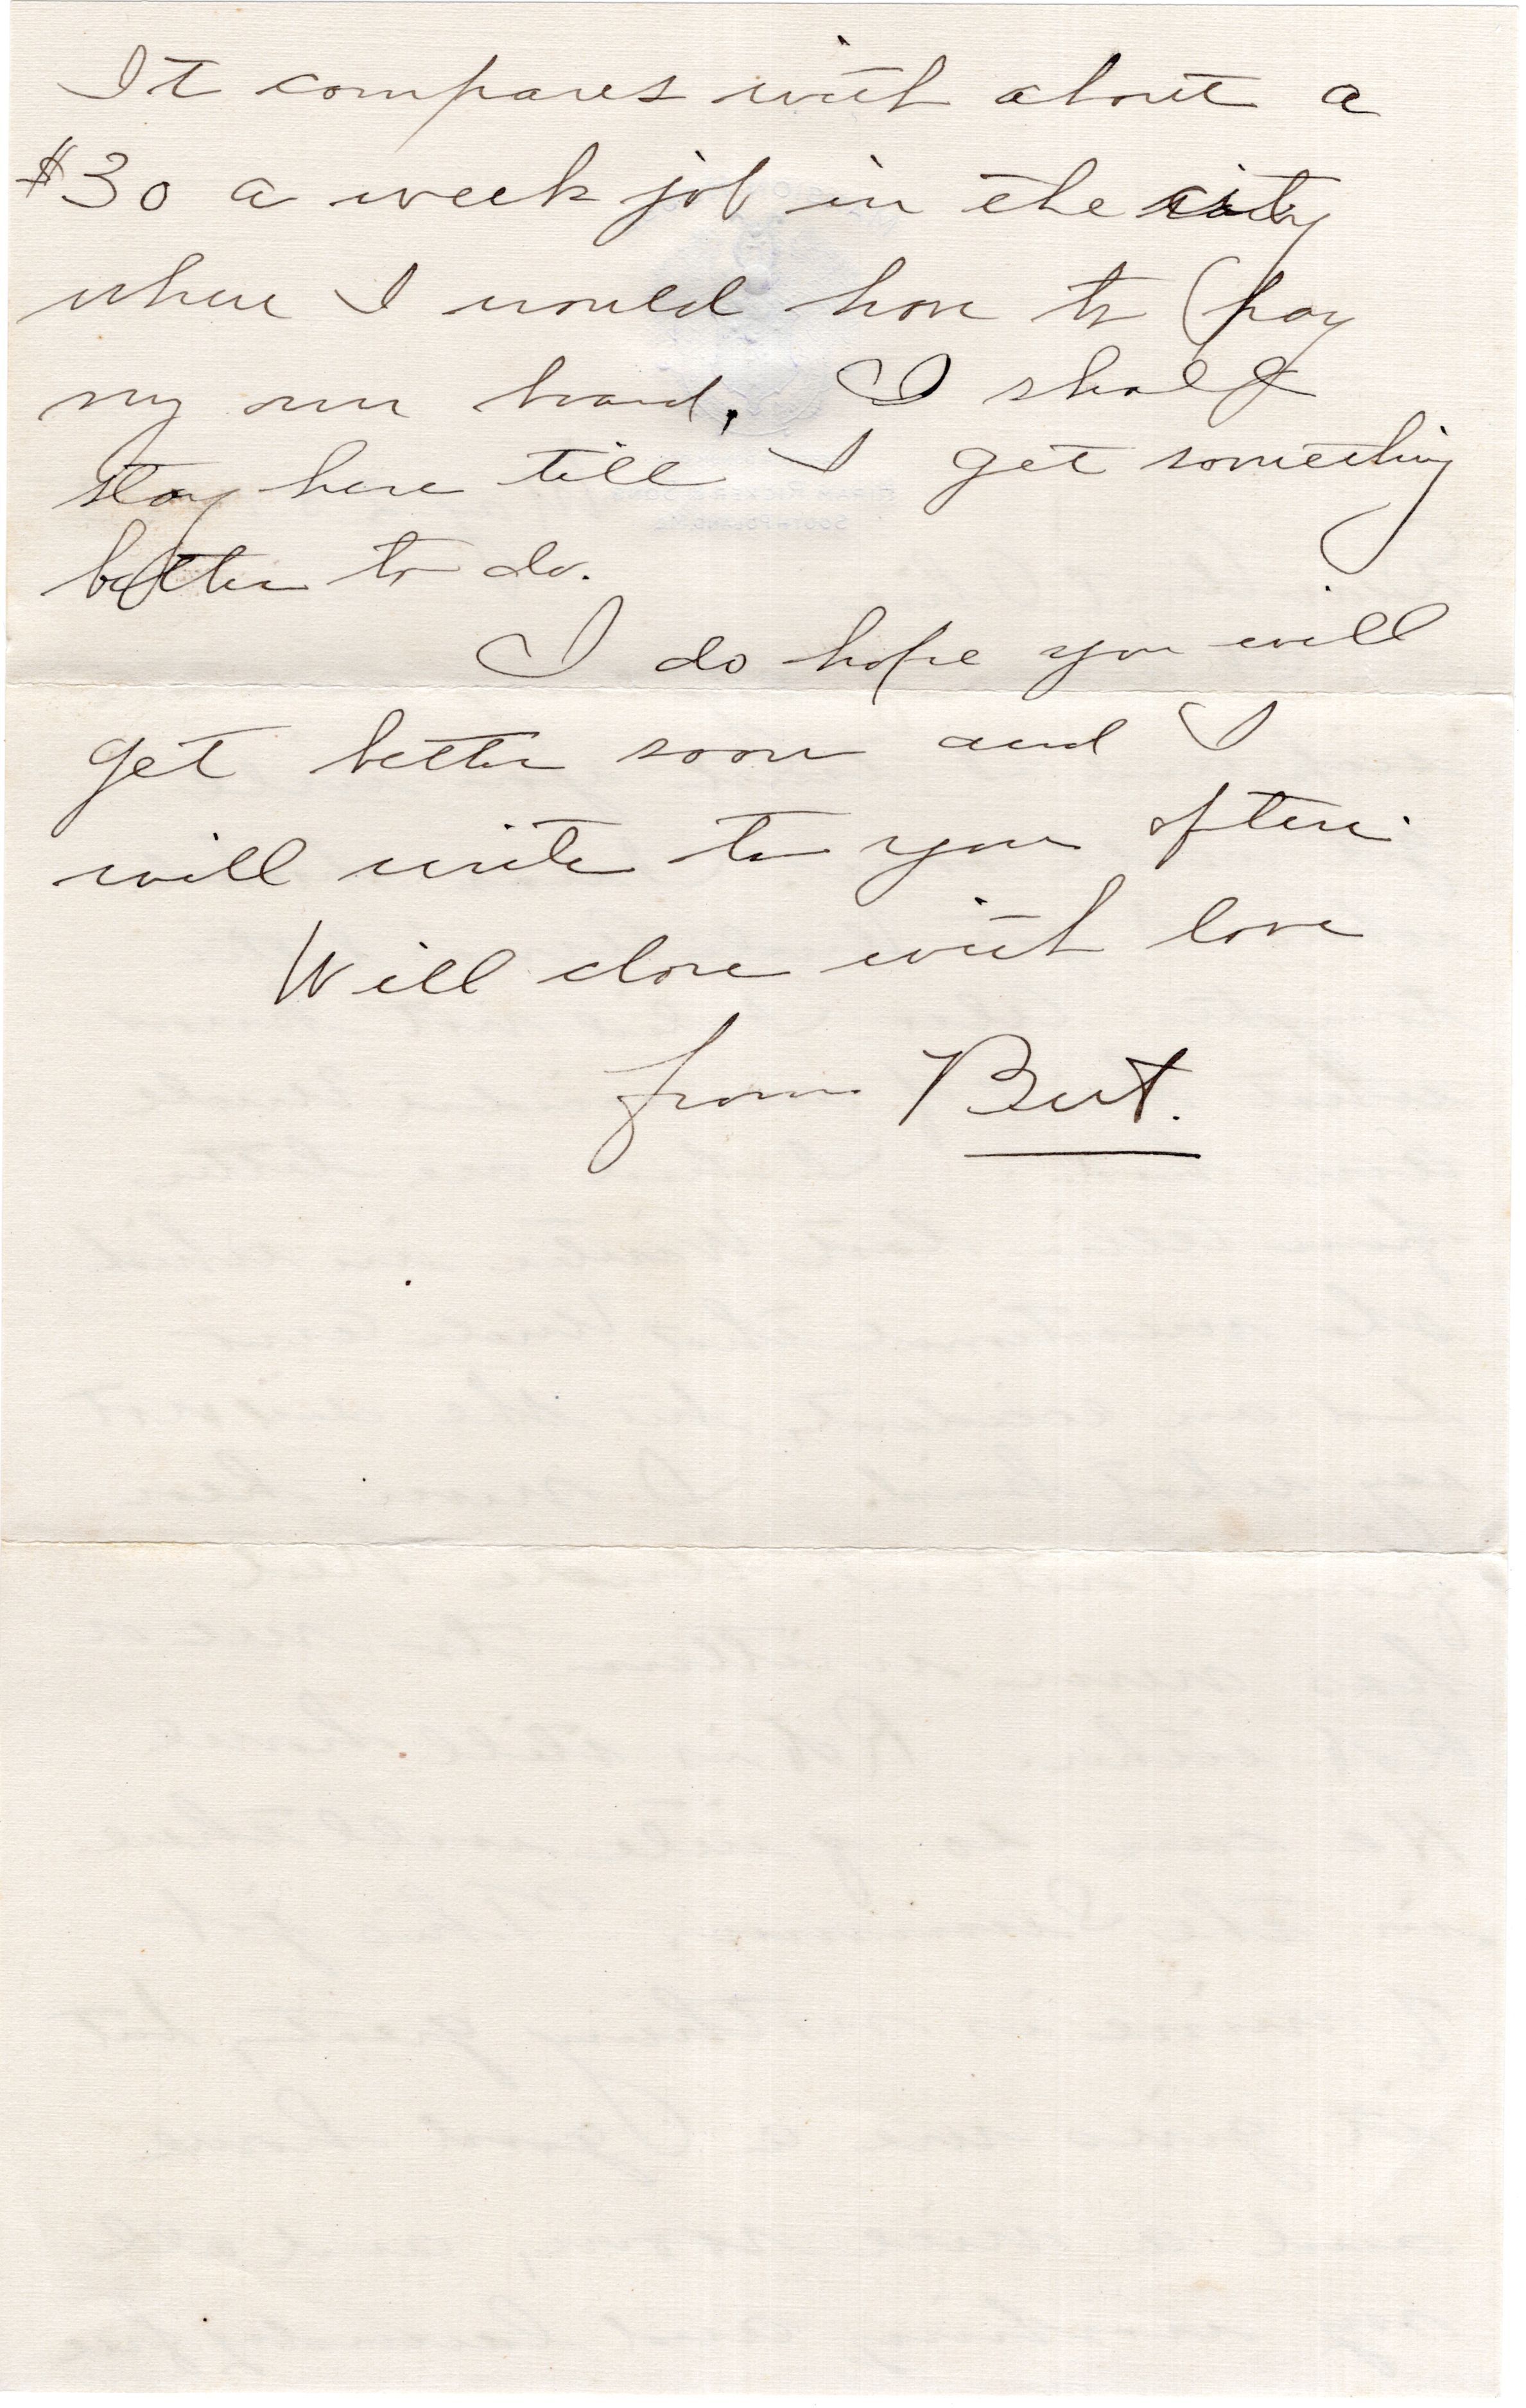 It compares with about a
$30 a week job in the city
where I would have to pay
my own board. I shall
stay here till I get something
better to do.
I do hope you will
get better soon and I
will write to you often.
Will close with love
from Bert.